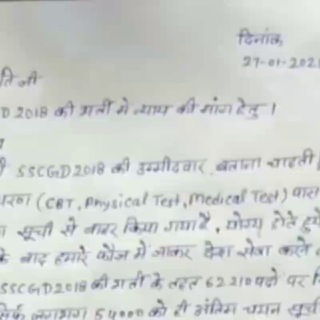 दिनांक
27-01-202
ति जी
D 2018 की भर्ती में न्याय की मांग हेतु ।
SSCGD2018 की उम्मीदवार, बताना चाहती
(CBT, Physical Test, Medical Test) पास
सूची से बाहर किया गया है, योग्य होते हुये
के बाद हमारे फौज में जाकर देश सेवा करने
SSCGD2018 की भर्ती के तहत 62210 पदो पर
लगभग 54000 को ही अंतिम चयन सूची